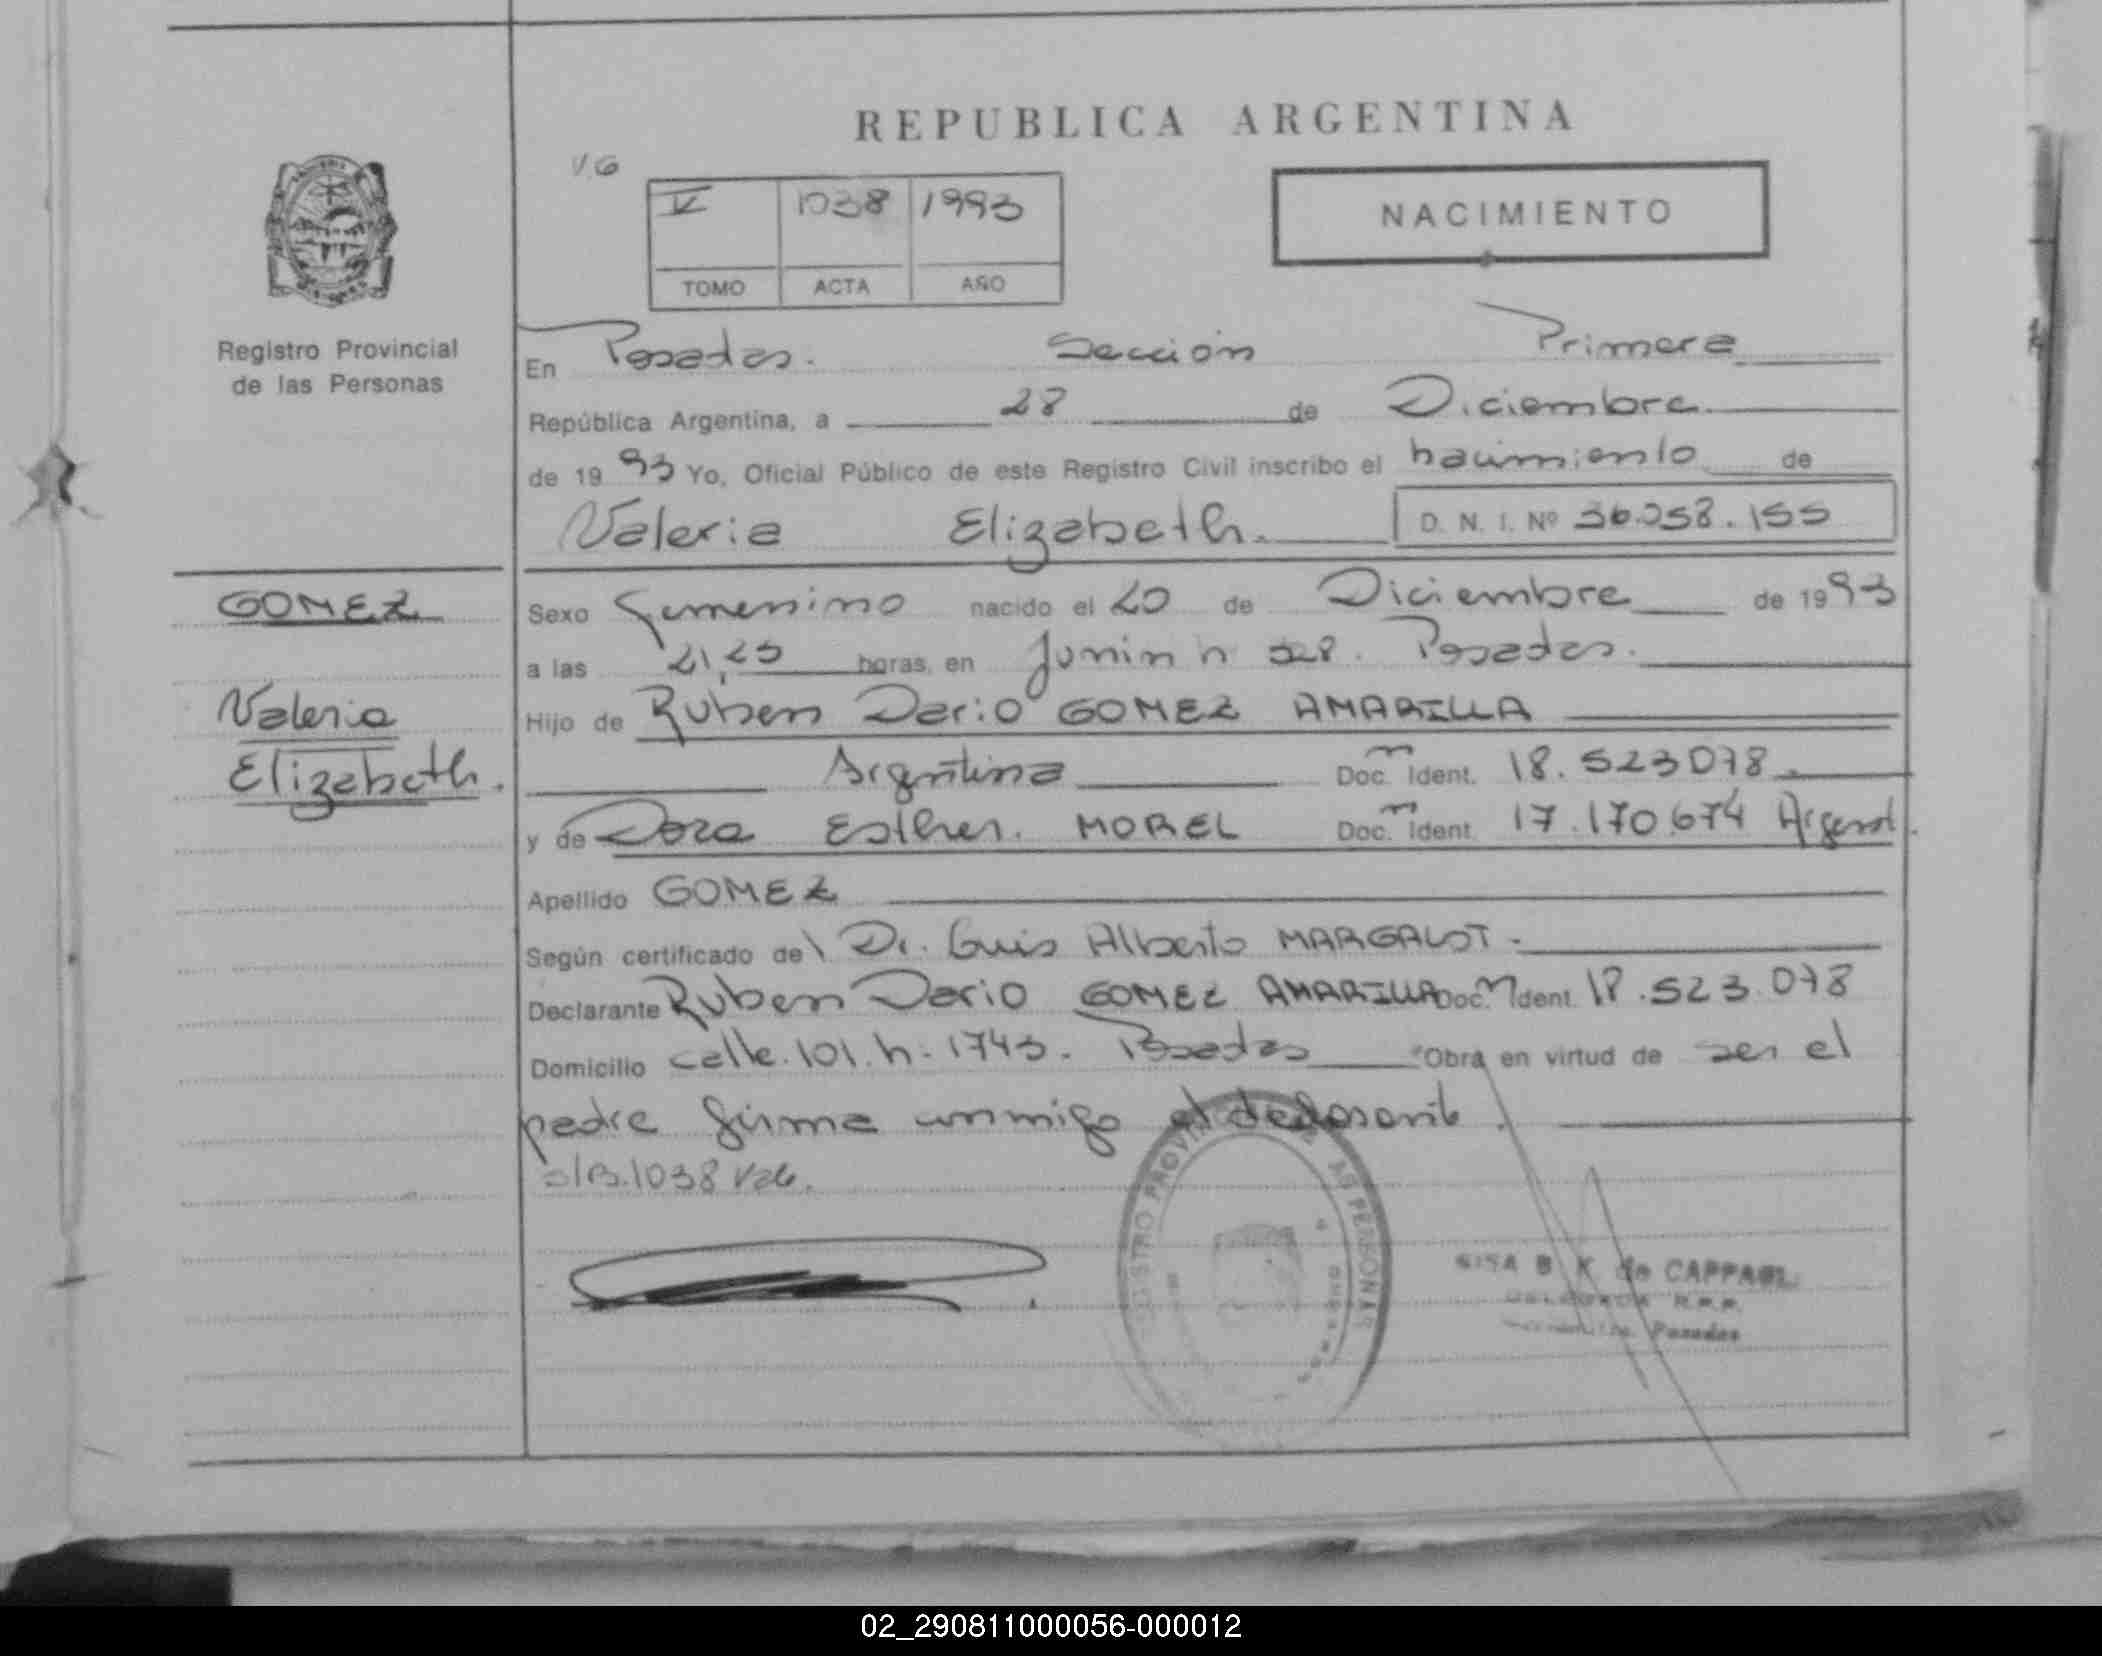 REPUBLICA ARGENTINA
V.G
V 1038 1993
TOMO ACTA AÑO
NACIMIENTO
Registro Provincial
de las Personas
En Posadas. Sección Primera
República Argentina, a 28 de Diciembre.
de 1993 Yo, Oficial Público de este Registro Civil inscribo el nacimiento de
Valeria Elizabeth. D. N. I. Nº 36.058.155
GOMEZ
Valeria
Elizabeth.
Sexo femenino nacido el 20 de Diciembre de 1993
a las 21,25 horas, en Junin n 328. Posadas.
Hijo de Ruben Dario GOMEZ AMARILLA
Argentina Doc. m Ident. 18.523078.
y de Dora Esther. MOREL Doc. m Ident. 17.170.674 Argent.
Apellido GOMEZ
Según certificado del Dr. Luis Alberto MARGALOT.
Declarante Ruben Dario GOMEZ AMARILLA Doc. m Ident. 18.523.078
Domicilio calle.101.h.1743. Posadas Obra en virtud de ser el
padre firma conmigo el declarante.
1038
REGISTRO PROVINCIAL DE LAS PERSONAS
B K de CAPPAEL
DELEGADA R.P.P.
Posadas
02_290811000056-000012